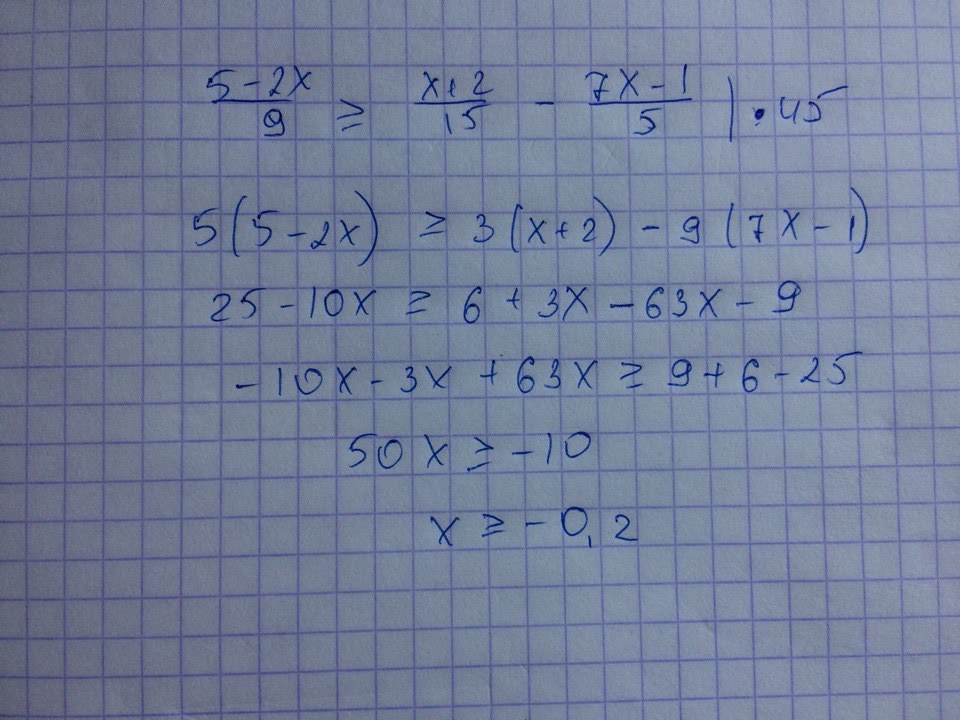 (5-2x)/9 ≥ (x+2)/15 - (7x-1)/5 | • 45
5(5-2x) ≥ 3(x+2) - 9(7x-1)
25-10x ≥ 6+3x-63x-9
-10x-3x+63x ≥ 9+6-25
50x ≥ -10
x ≥ -0,2